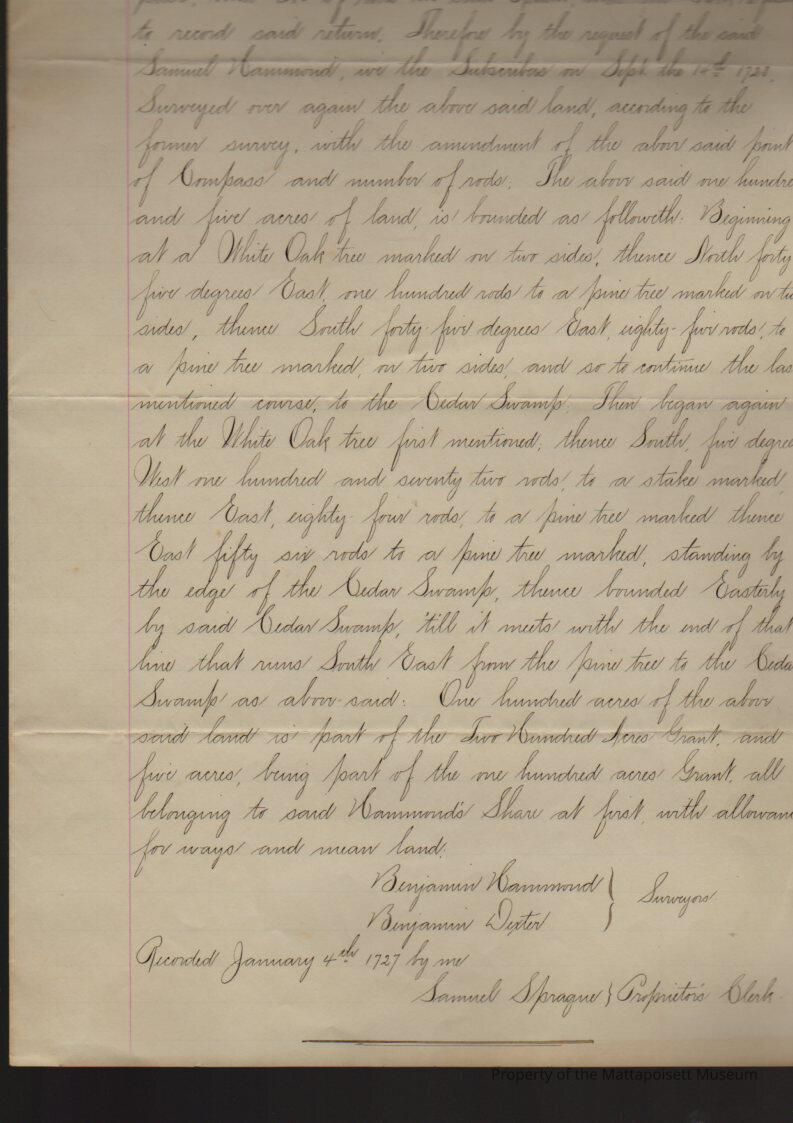 to record said return. Therefore by the request of the said
Samuel Hammond, we the Subscribers on Sept. the
Surveyed over again the above said land, according to the
former survey, with the amendment of the above said point
of Compass and number of rods; The above said one hundre
and five acres of land, is bounded as followeth: Beginning
at a White Oak tree marked on two sides, thence North forty
five degrees East, one hundred rods to a pine tree marked on tw
sides, thence South forty-five degrees East, eighty-five rods, to
a pine tree marked, on two sides, and so to continue the las
mentioned course, to the Cedar Swamp. Then began again
at the White Oak tree first mentioned, thence South, five degree
West one hundred and seventy two rods, to a stake marked,
thence East, eighty four rods, to a pine tree marked thence
East fifty six rods to a pine tree marked, standing by
the edge of the Cedar Swamp, thence bounded Easterly
by said Cedar Swamp, 'till it meets with the end of that
line that runs South East from the pine tree to the Ceda
Swamp as above-said: One hundred acres of the above
said land is part of the Two Hundred Acres Grant, and
five acres, being part of the one hundred acres Grant, all
belonging to said Hammond's Share at first, with allowan
for ways and mean land.
Benjamin Hammond }
Benjamin Dexter } Surveyors.
Recorded January 4th 1727 by me
Samuel Sprague } Proprietor's Clerk.
Property of the Mattapoisett Museum